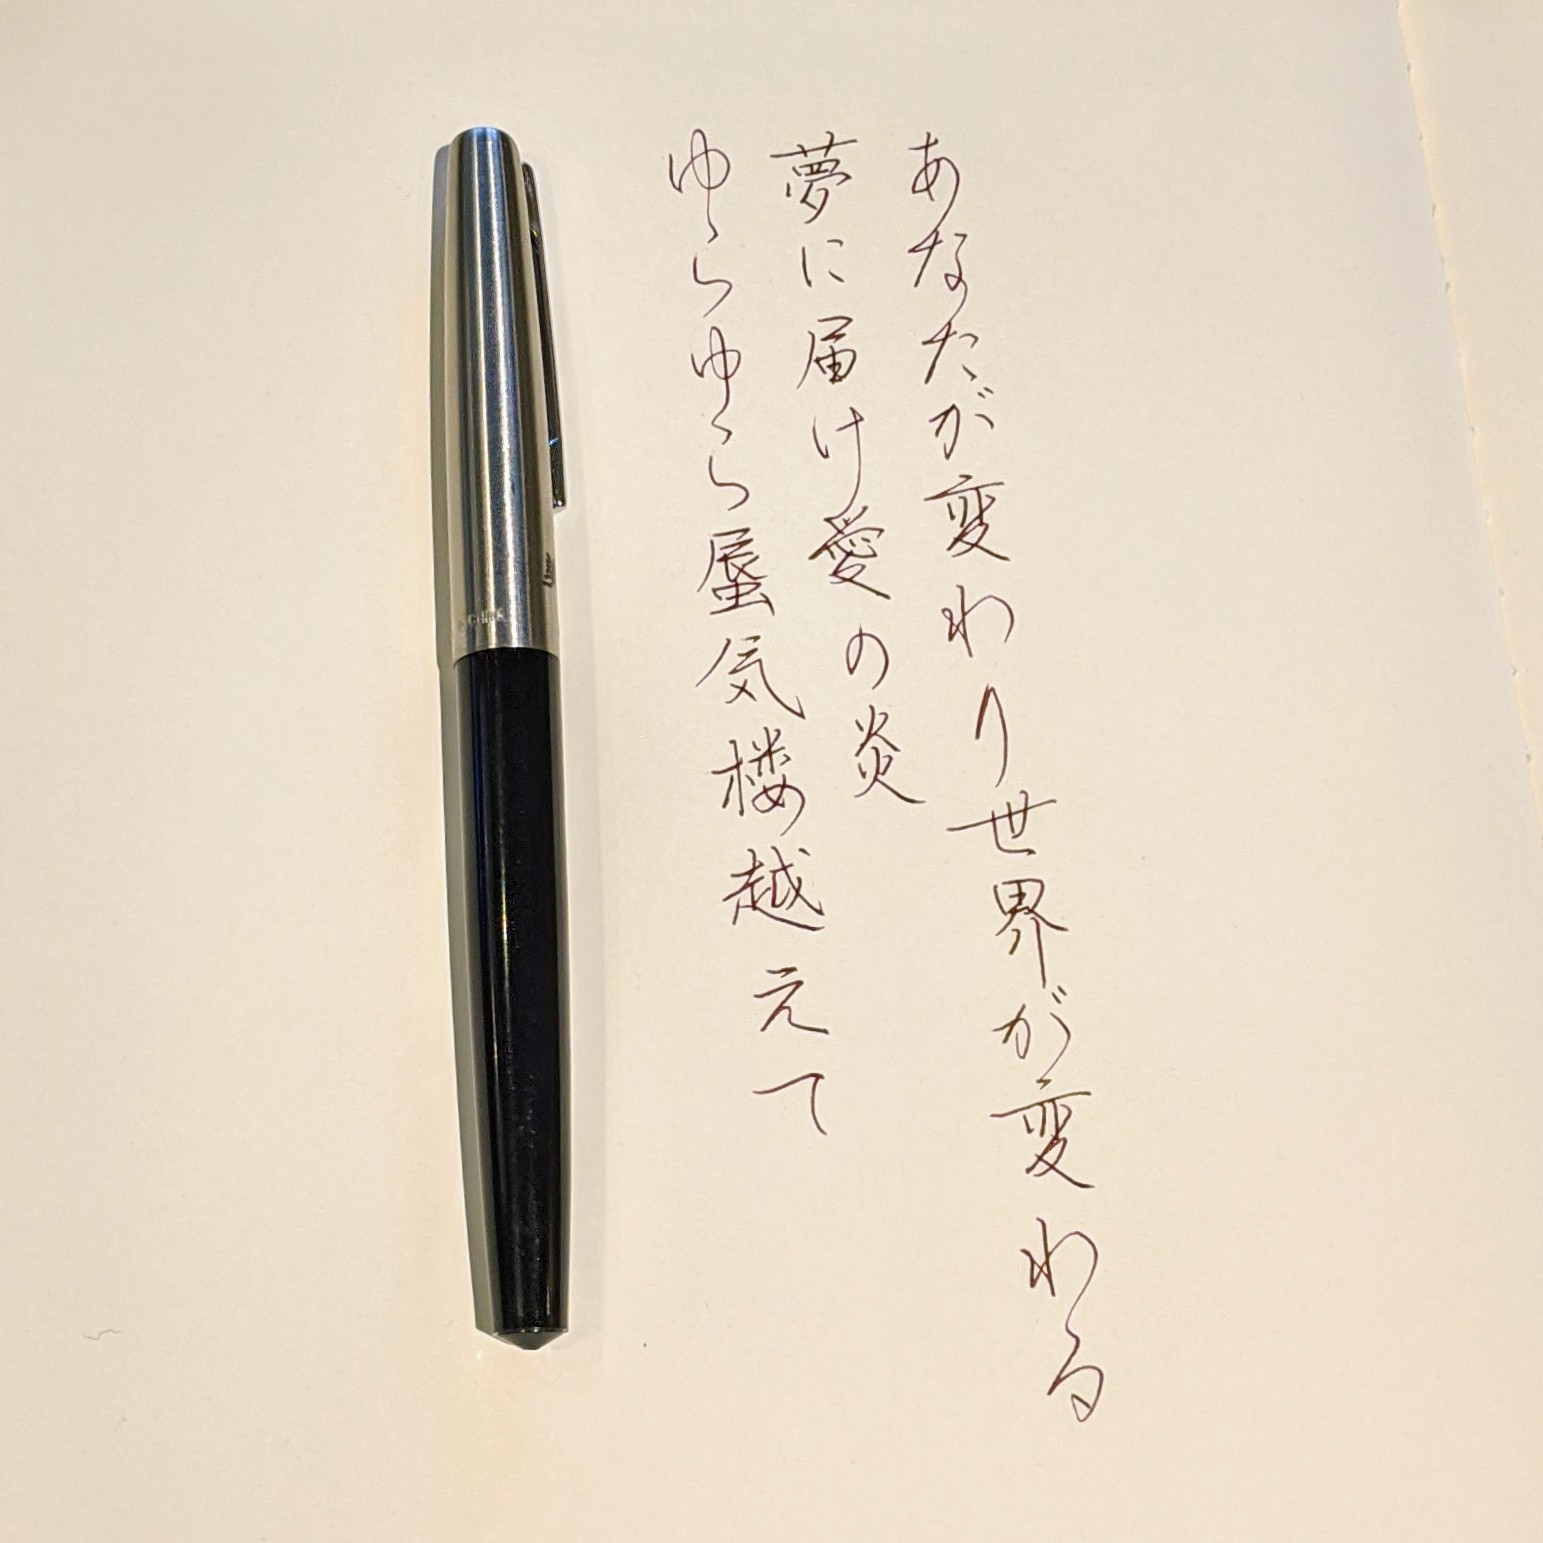 あなたが変わり世界が変わる
夢に届け愛の炎
ゆらゆら蜃気楼越えて